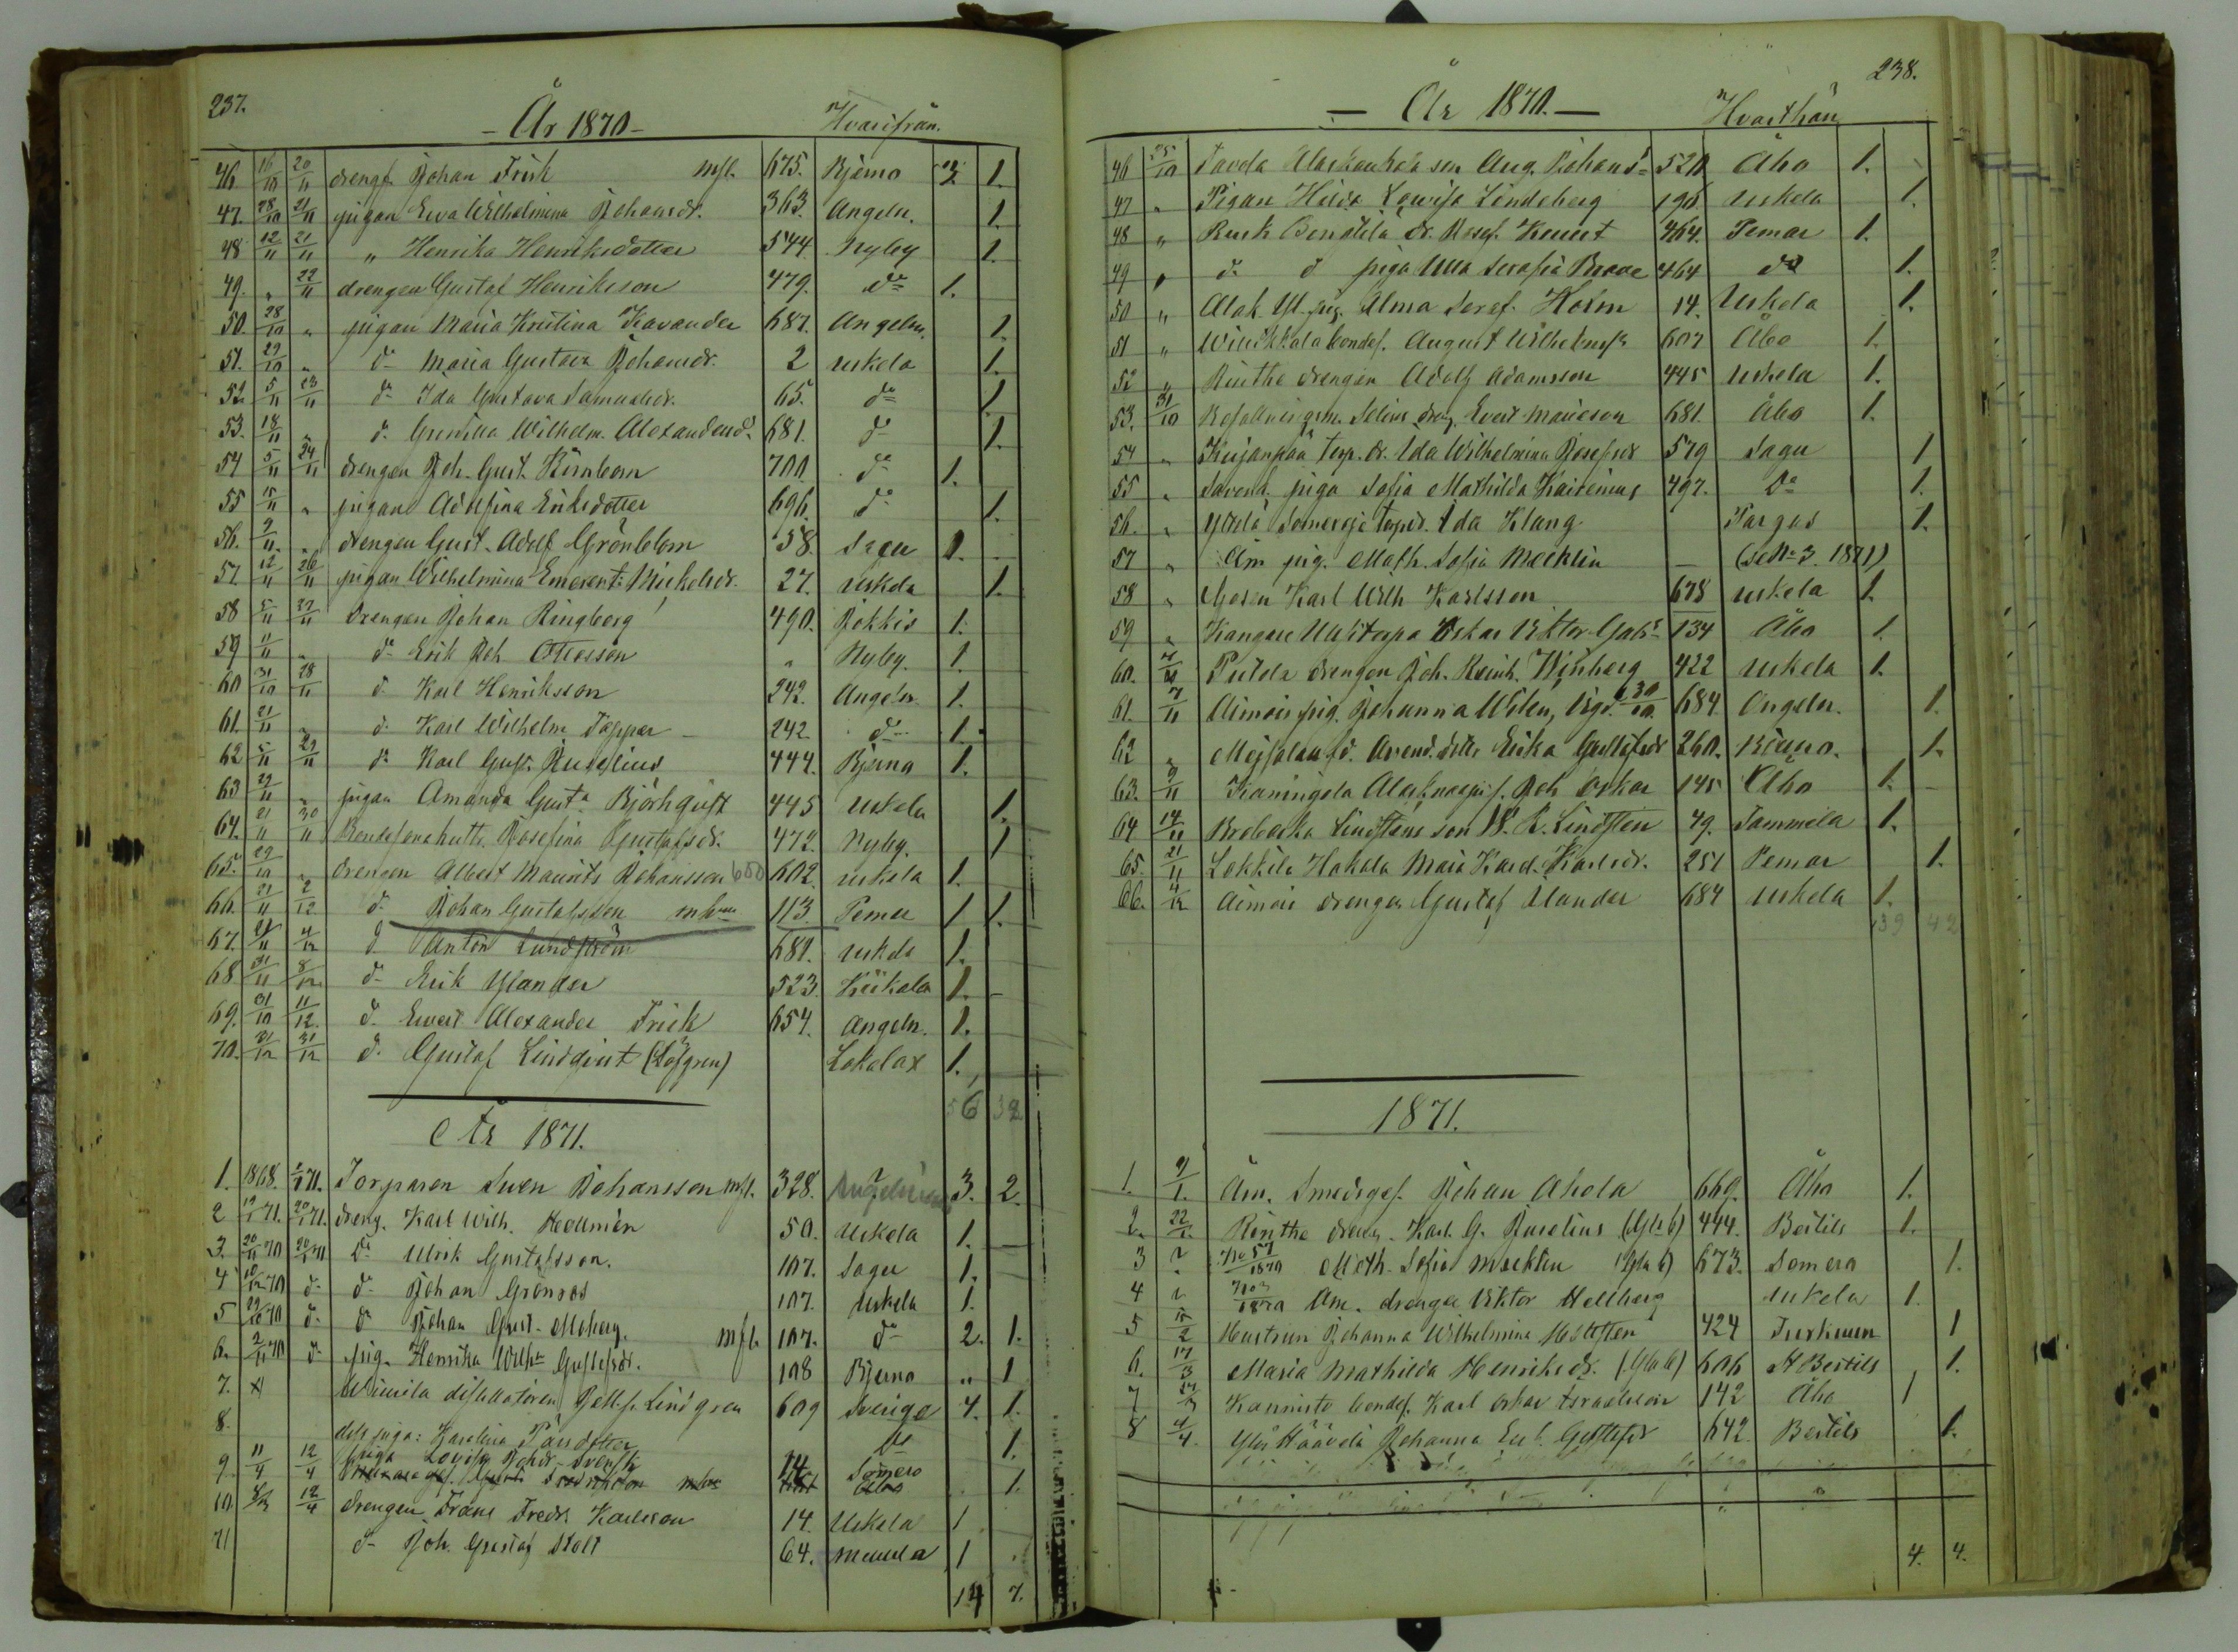 237.
- År 1870 - Hvarifrån.
46. 16/10 20/11 drengf. Johan Frisk mfl. 675. Bjerno 2 1.
47. 28/10 21/11 pigan Ewa Wilhelmina Johansdr. 363. Angeln. 1.
48 12/11 21/11 „ Henrika Henriksdotter 544 Nyby 1.
49. „ 22/11 drengen Gustaf Henriksson 479. do 1.
50. 28/10 „ pigan Maria Kristina Kavander 687. Angeln. 1.
51. 29/10 „ do Maria Gustava Johansdr. 2 Uskela 1.
52 5/11 23/11 do Ida Gustava Samuelsdr. 65. do 1
53. 18/11 „ d. Gunilla Wilhelm. Alexandersd. 681. do 1.
54 5/11 24/11 drengen Joh. Gust. Kürnbom 700. do 1.
55 15/11 „ pigan Adolfina Eriksdotter 696. do 1.
56. 9/11 „ drengen Gust. Adolf Grönblom 58. Sagu 1.
57. 12/11 26/11 pigan Wilhelmina Emerent: Mickelsdr. 27. Uskela 1.
58 5/11 27/11 drengen Johan Ringberg 490. Jokkis 1.
59 11/11 „ do Erik Joh Ottosson „ Nyby. 1.
60 31/10 28/11 d. Karl Henriksson 242. Angeln. 1.
61. 21/11 „ d. Karl Wilhelm Tappar 242. do 1.
62 5/11 29/11 do Karl Gust. Juselius 444. Bjerno 1.
63 29/11 „ pigan Amanda Gust. Björkqvist 445 Uskela 1.
64. 21/11 30/11 Josefina Gustafsdr. 472. Nyby. 1
65. 29/10 „ drengen Albert Maurits Johansson 600 602. Uskela 1.
66. 21/11 2/12 d. Johan Gustafsson mhu 113. Pemar 1 1.
67. 21/11 4/12 d Anton Lundström 681. Uskela 1.
68 21/11 8/12 do Erik Ylander 523. Kiikala 1.
69. 31/10 11/12. d. Ewert Alexander Frisk 654. Angeln. 1.
70. 21/12 31/12 d. Gustaf Lindqvist (Löfgren) Lokalax 1.
56 32
År 1871.
1. 1868. 71. Torparen Sven Johansson mfl. 328. Angelniemi 3. 2.
2 19/1 71. 20/1 71. dreng. Karl Wilh. Hellmén 50. Uskela 1.
3. 20/11 70 20/1 71 do Ulrik Gustafsson. 107. Sagu 1.
4 10/12 70 d. d. Johan Grönroos 107. Uskela 1.
5 29/10 70 d. do Johan Gust. Moberg. mfl. 107. do 2. 1.
6. 2/11 70 d. pig. Henrika Wilh. Gustafsdr. 108 Bjerno „ 1
7. x) distillatoren Lindgren 609 Sverige 4. 1.
8. dess piga: Karolina Parsdotter do 1.
9. 11/4 12/4 piga Lovisa Johdr. Svensk 14 Somero 1.
10. 12/4 drengen Frans Fredr. Karlsson 14. Uskela 1
11 d. Joh. Gustaf Stolt 64. 1
14 7.
238.
- År 1870. - Hvarthän
46 25/10 son Aug. Johans. 520 Åbo 1.
47 „ Pigan Hilda Lowisa Lindeberg 196 Uskela 1.
48 „ Rusk Bendtilä dr. Josef. 464. Pemar 1.
49 „ d. d piga Ulla Serafia 464 do 1.
50 „ Alma Josef. Holm 14. Uskela 1.
51 „ bondes. August Wilhelmss. 607 Åbo 1.
52 „ Rinthe drengen Adolf Adamsson 445 Uskela 1.
53. 31/10 dreng. Evert Mauson 681. Åbo 1.
54 „ Kujanpää torp. dr. Ida Wilhelmina Josefsdr 579 Sagu 1
55 „ piga Sofia Mathilda Kaitenius 497. Do 1.
56. „ Ida Klang Pargas 1.
57 „ Åm pig. Math. Sofia Mecklin — (se No 3. 1871)
58 „ Karl Wilh Karlsson 678 Uskela 1.
59 „ Kangare Oskar Viktor 134 Åbo 1.
60. 7/11 Puttila drengen Joh. Reinh. Winberg 422 Uskela 1.
61. 7/11 Aimois pig. Johanna Wilen, 30/10. 684. Angeln. 1.
62 „ Erika Gustafsdr 260. Kiuno. 1.
63. 9/11 Kaningola Joh Oskar 145 Åbo 1.
64 14/11 Lindstens son W. R. Lindsten 49. Tammela 1.
65. 21/11 Lekkila Hakala Maria Karol. Karlsdr. 251 Pemar 1.
66. 4/12 Aimois drengen Gustaf Ulander 684 Uskela 1.
39 42
1871.
1. 9/1. Åm. Smedsges. Johan Ahola 669. Åbo 1.
2. 22/1. Rinthe dreng. Karl G. Juselius (Gla b) 444. Bertils 1.
3 „ No 57/1870 Math. Sofia Mecklin (Gla b) 673. Somero 1.
4 „ 1870 Åm. drengen Viktor Hellberg Uskela 1.
5 15/2 Hustrun Johanna Wilhelmina 424 1
6. 17/3 Maria Mathilda Henriksdr. (Gla b) 606 St Bertils 1.
7 Kannisto bondes. Karl Oskar Israelsson 142 Åbo 1
8 4/4. Johanna Gustafsdr 642 Bertils 1.
4. 4.